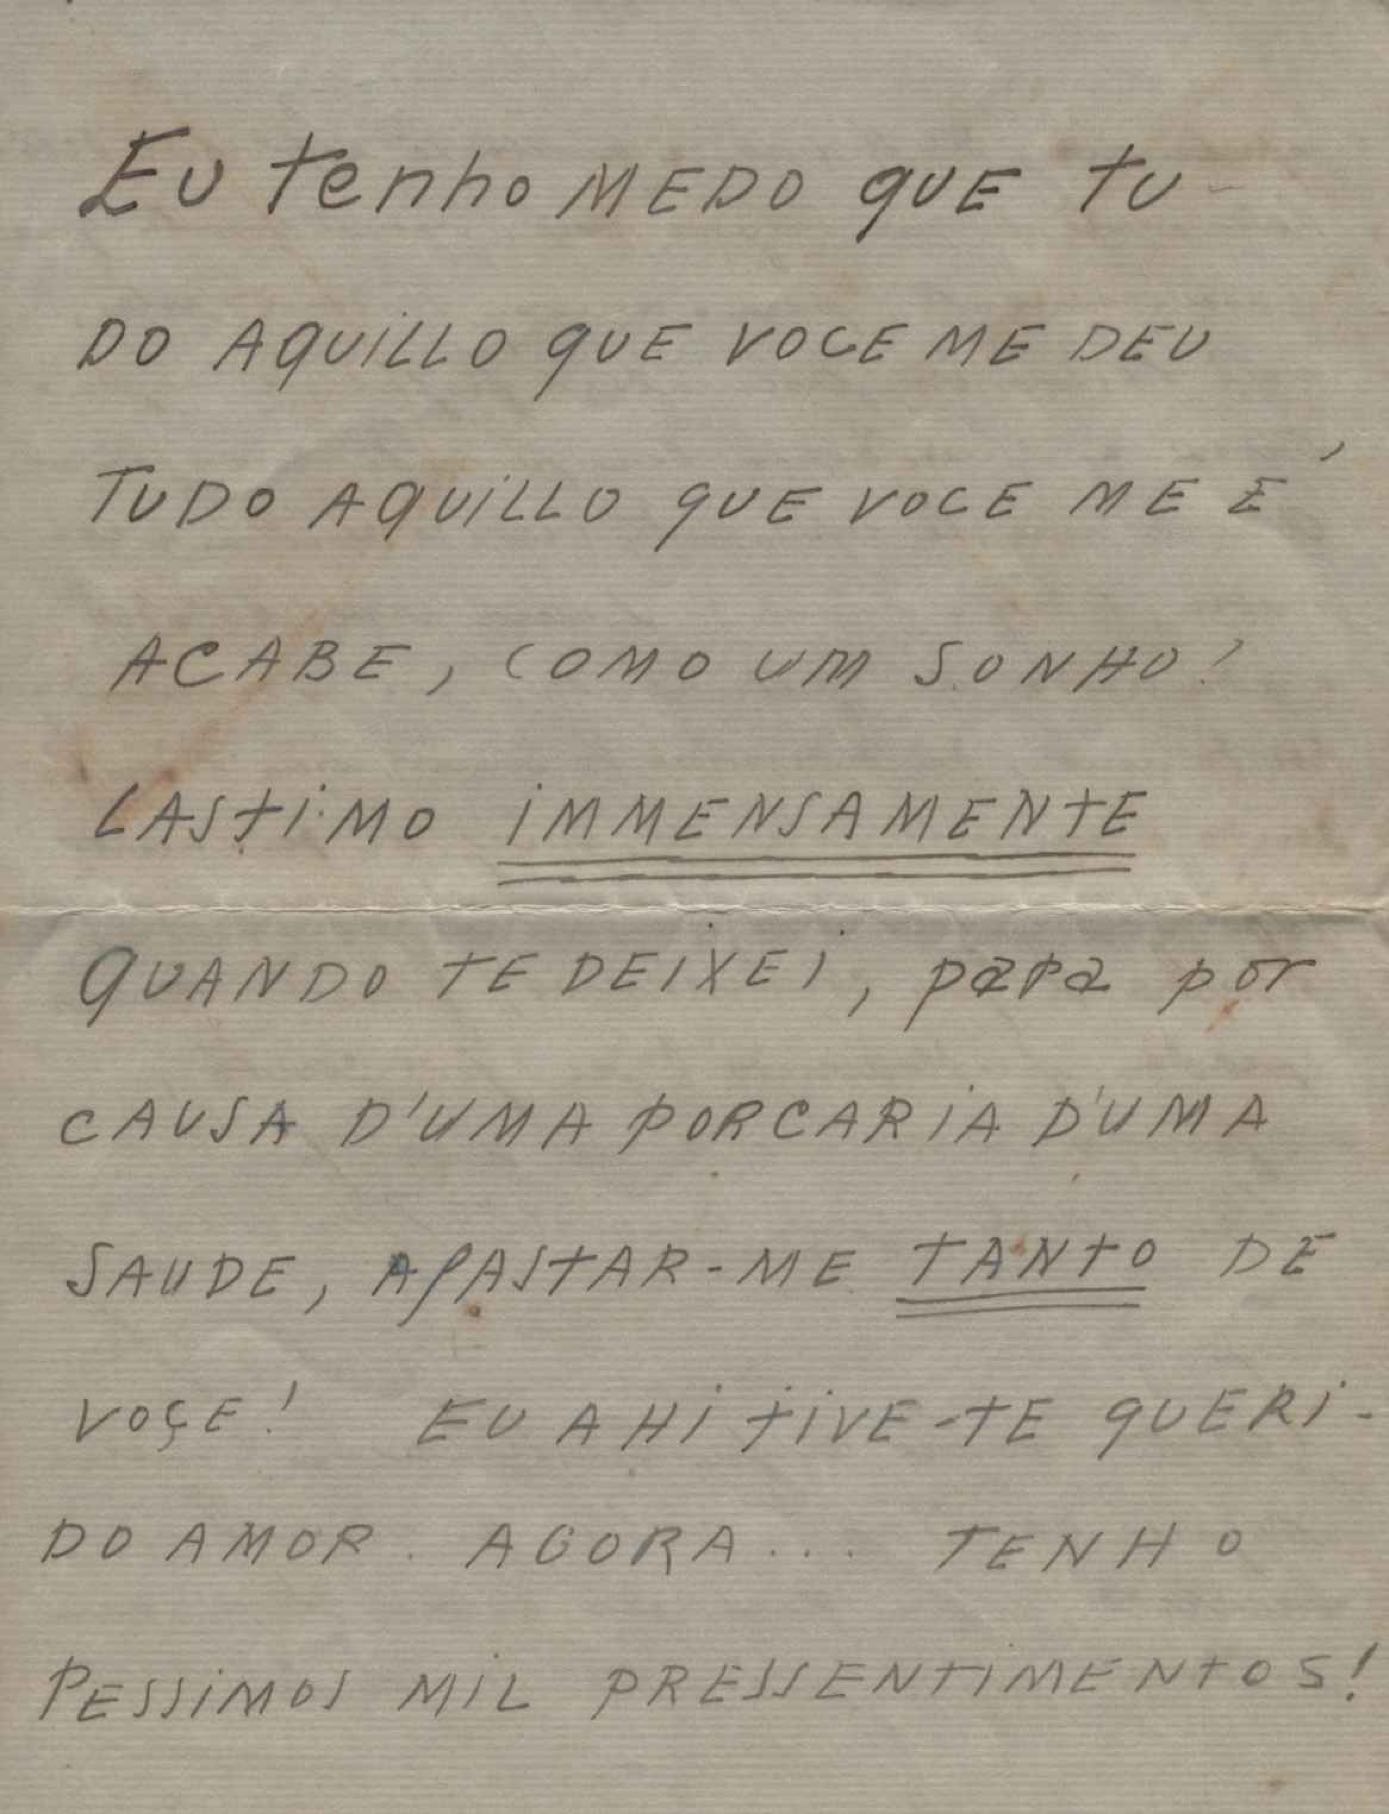 Eu tenho MEDO QUE TU-
DO AQUILLO QUE VOCE ME DEU
TUDO AQUILLO QUE VOCE ME E'
ACABE, COMO UM SONHO!
LASTIMO IMMENSAMENTE
QUANDO TE DEIXEI, para por
CAUSA D'UMA PORCARIA D'UMA
SAUDE, AFASTAR-ME TANTO DE
VOÇE! EU AHI TIVE-TE QUERI-
DO AMOR. AGORA... TENHO
PESSIMOS MIL PRESSENTIMENTOS!